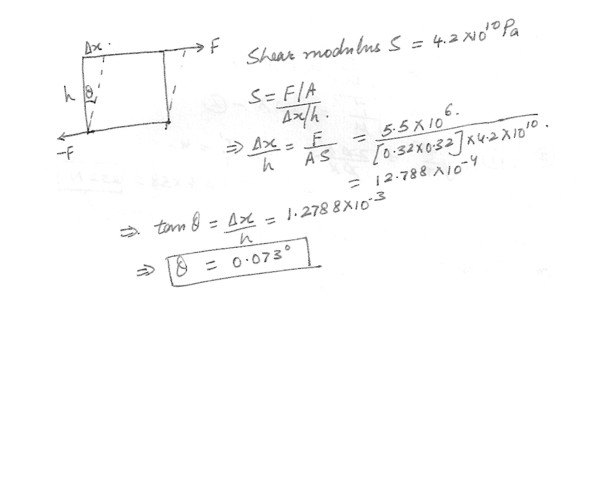 Δx.
F
h
θ
-F
Shear modulus S = 4.2×10¹⁰ Pa
S = F/A / Δx/h.
⇒ Δx/h = F/AS = 5.5×10⁶. / [0.32×0.32]×4.2×10¹⁰.
= 12.788×10⁻⁴
⇒ tanθ = Δx/h = 1.2788×10⁻³
⇒ θ = 0.073°